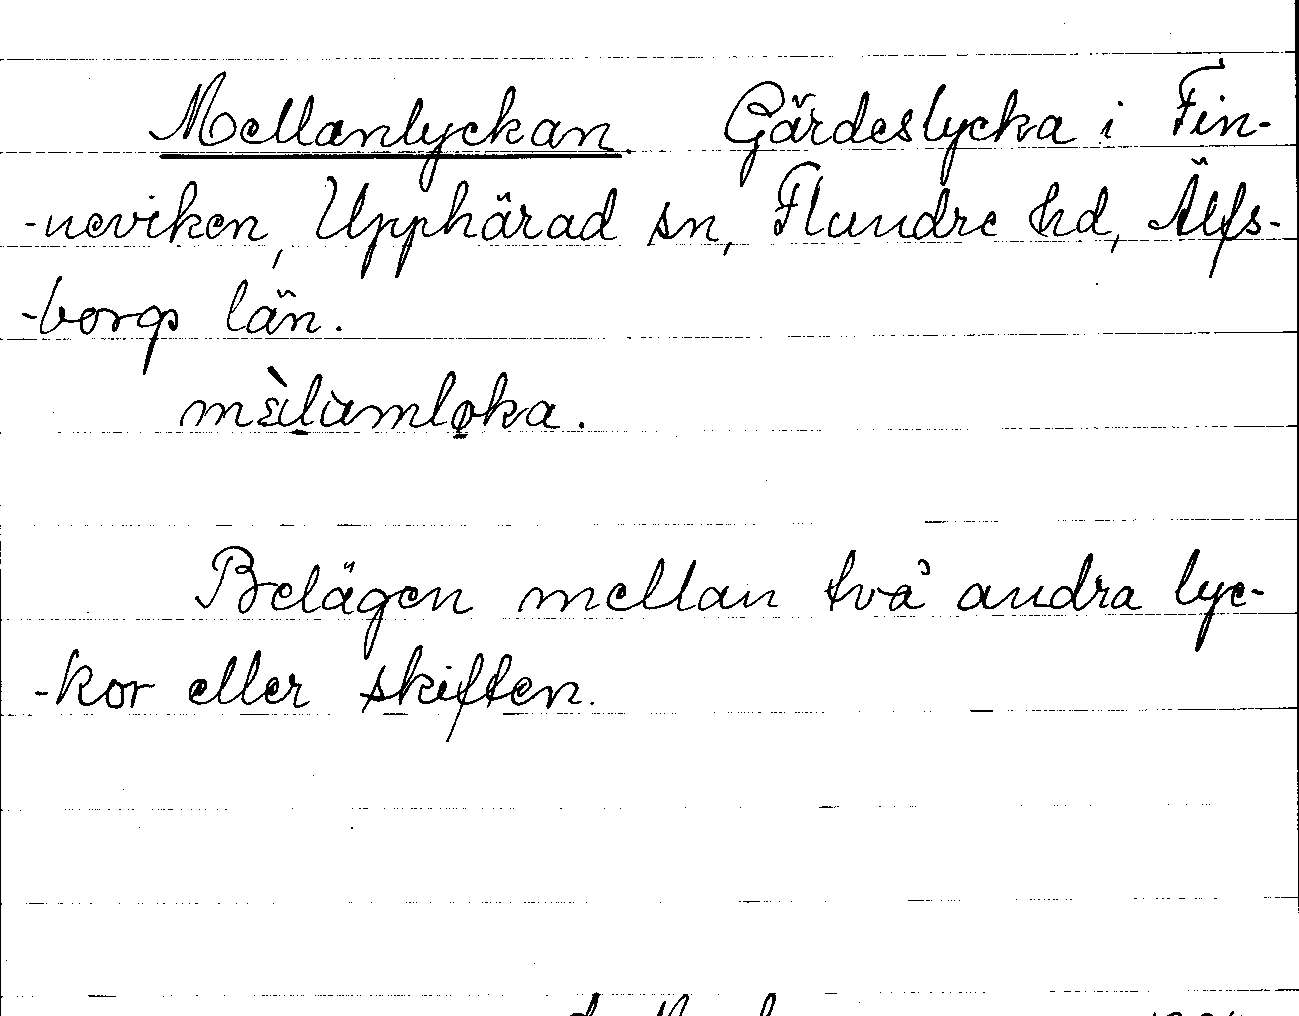 Mellanlyckan. Gärdeslycka i Fin-
-neviken, Upphärad sn, Flundre hd, Älfs-
-borgs län.
mὲlàmløka.
Belägen mellan två andra lyc-
-kor eller skiften.